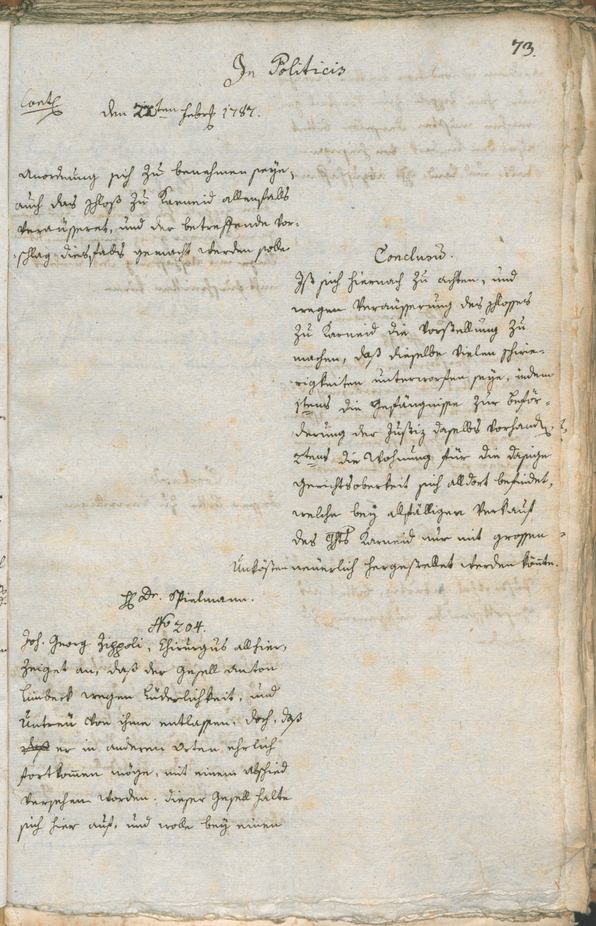 73.
In Politicis
Cont:
den 22ten Febr: 1787.
Anordnung sich zu benehmen seye,
auch das Schloß zu Karneid allenfalls
veräusseret, und der betreffende Vor-
schlag diesfalls gemacht werden solle
Conclusū.
Ist sich hiernach zu achten, und
wegen Veräusserung des Schlosses
zu Karneid die Vorstellung zu
machen, daß dieselbe vielen schwie-
rigkeiten unterworfen seye, indem
1tens die Gefängnisse zur Beför-
derung der Justiz daselbs vorhanden,
2tens die Wohnung für die dasige
Gerichtsoberkeit sich alldort befindet,
welche bey allfälligen Verkauf
des Schloß Karneid nur mit grossen
Unkösten neuerlich hergestellet werden könte.
H Dr. Spielmann.
No 204.
Joh. Georg Zippoli, Chirurgus allhier,
zeiget an, daß der Gesell Anton
Limbeck wegen Luderlichkeit, und
Untreü von ihme entlassen, doch, daß
er in anderen Orten ehrlich
fortkom̄en möge, mit einem Abschied
versehen worden. dieser Gesell halte
sich hier auf, und wolle bey einen